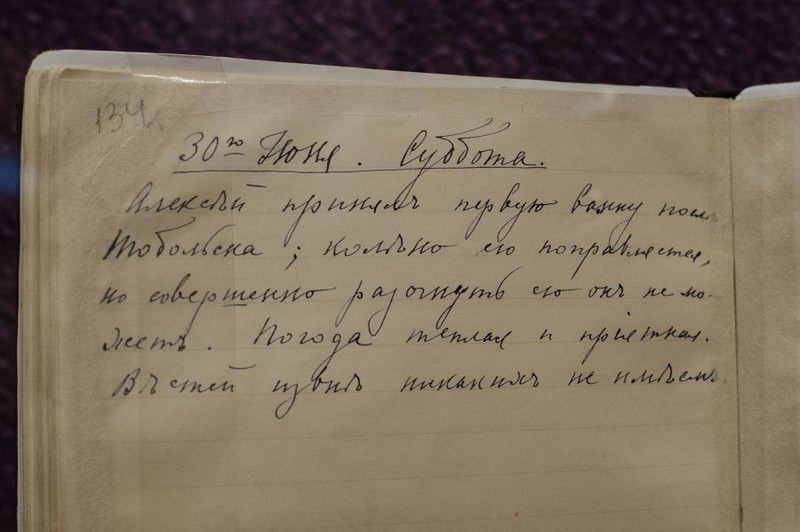 134.
30го Июня. Суббота.
Алексѣй принялъ первую ванну послѣ
Тобольска; колѣно его поправляется,
но совершенно разогнуть его онъ не мо-
жетъ. Погода теплая и пріятная.
Вѣстей извнѣ никакихъ не имѣемъ.